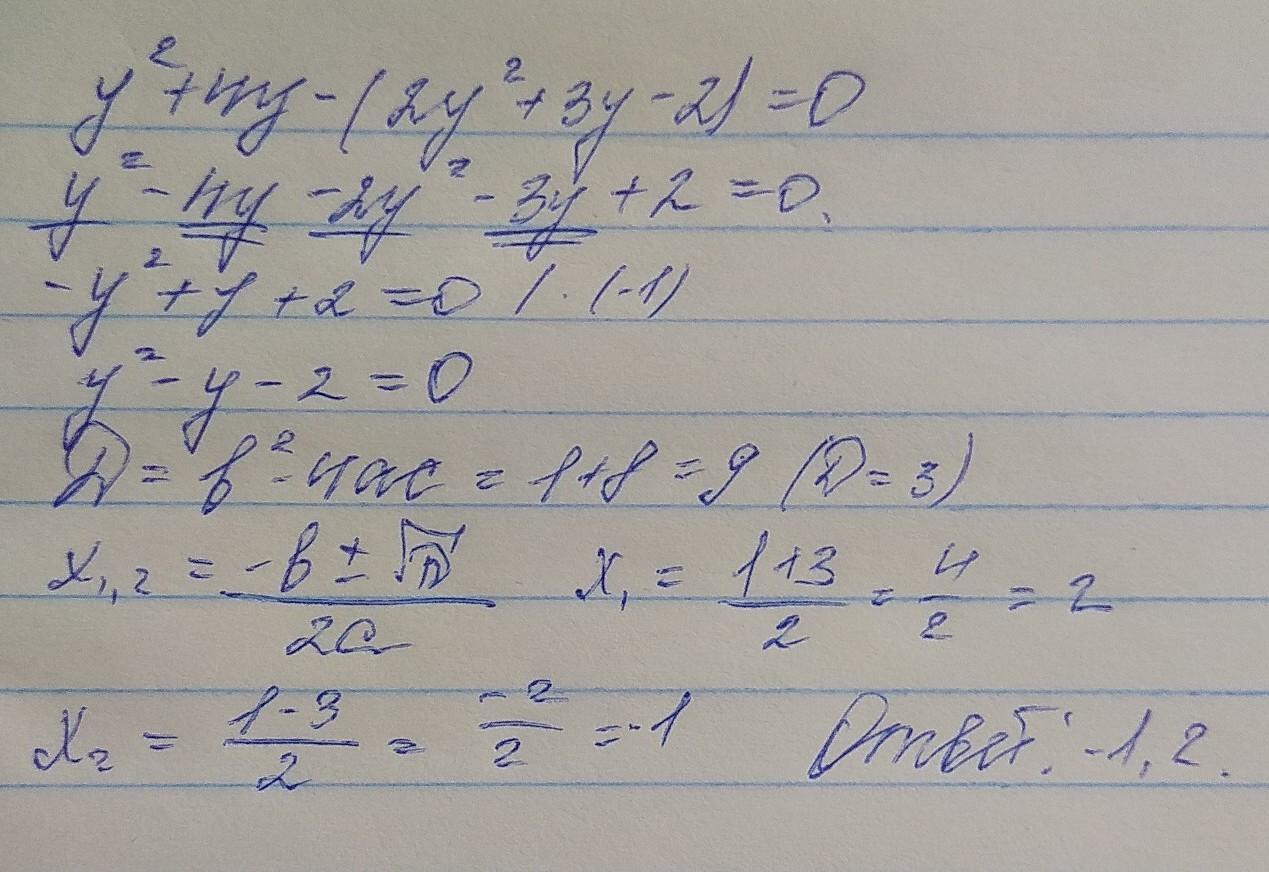 y² + 4y - (2y² + 3y - 2) = 0
y² - 4y - 2y² - 3y + 2 = 0.
-y² + y + 2 = 0 / · (-1)
y² - y - 2 = 0
D = b² - 4ac = 1+8 = 9 (D = 3)
x₁,₂ = (-b ± √D) / 2a x₁ = (1+3)/2 = 4/2 = 2
x₂ = (1-3)/2 = -2/2 = -1 Ответ: -1, 2.